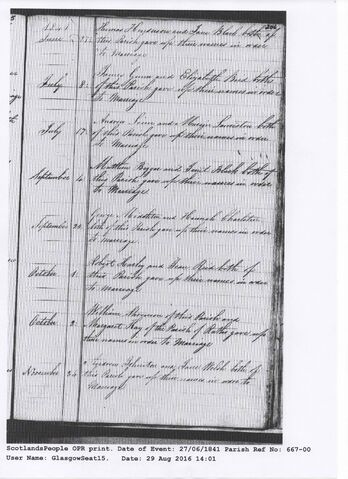 1841
June 27 Thomas Henderson and Jane Black both of
this Parish gave up their names in order
to Marriage
July 8 James Gunn and Elizabeth Reid both
of this Parish gave up their names in order
to Marriage
July 17 Andrew and both
of this Parish gave up their names in order
to Marriage
September 4 Matthew and Janet Black both of
this Parish gave up their names in order
to Marriage
September George Middleton and Hannah Charleton
both of this Parish gave up their names in order
to Marriage
October 1 Robert and Jean Reid both of
this Parish gave up their names in order
to Marriage
October 2 William of this Parish and
Margaret Hay of the Parish of gave up
their names in order to Marriage
November 24 Johnston and Jane Welsh both of
this Parish gave up their names in order to
Marriage
ScotlandsPeople OPR print. Date of Event: 27/06/1841 Parish Ref No: 667-00
User Name: GlasgowSeat15. Date: 29 Aug 2016 14:01